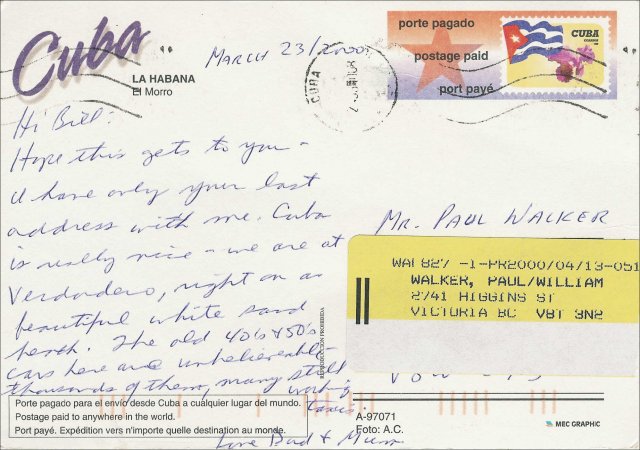 Cuba
LA HABANA
El Morro
MARCH 23/2000
porte pagado
postage paid
port payé
CUBA
CUBA
Hi Bill:
Hope this gets to you -
I have only your last
address with me. Cuba
is really nice - we are at
Verdadero, right on a
beautiful white sand
beach. The old 40's & 50's
cars here are unbelievable -
thousands of them, many still
working
taxis.
Love Dad & Mum
MR. PAUL WALKER
WAL827 -1-PR2000/04/13-051
WALKER, PAUL/WILLIAM
2741 HIGGINS ST
VICTORIA BC V8T 3N2
REPRODUCCION PROHIBIDA
Porte pagado para el envío desde Cuba a cualquier lugar del mundo.
Postage paid to anywhere in the world.
Port payé. Expédition vers n'importe quelle destination au monde.
A-97071
Foto: A.C.
MEC GRAPHIC